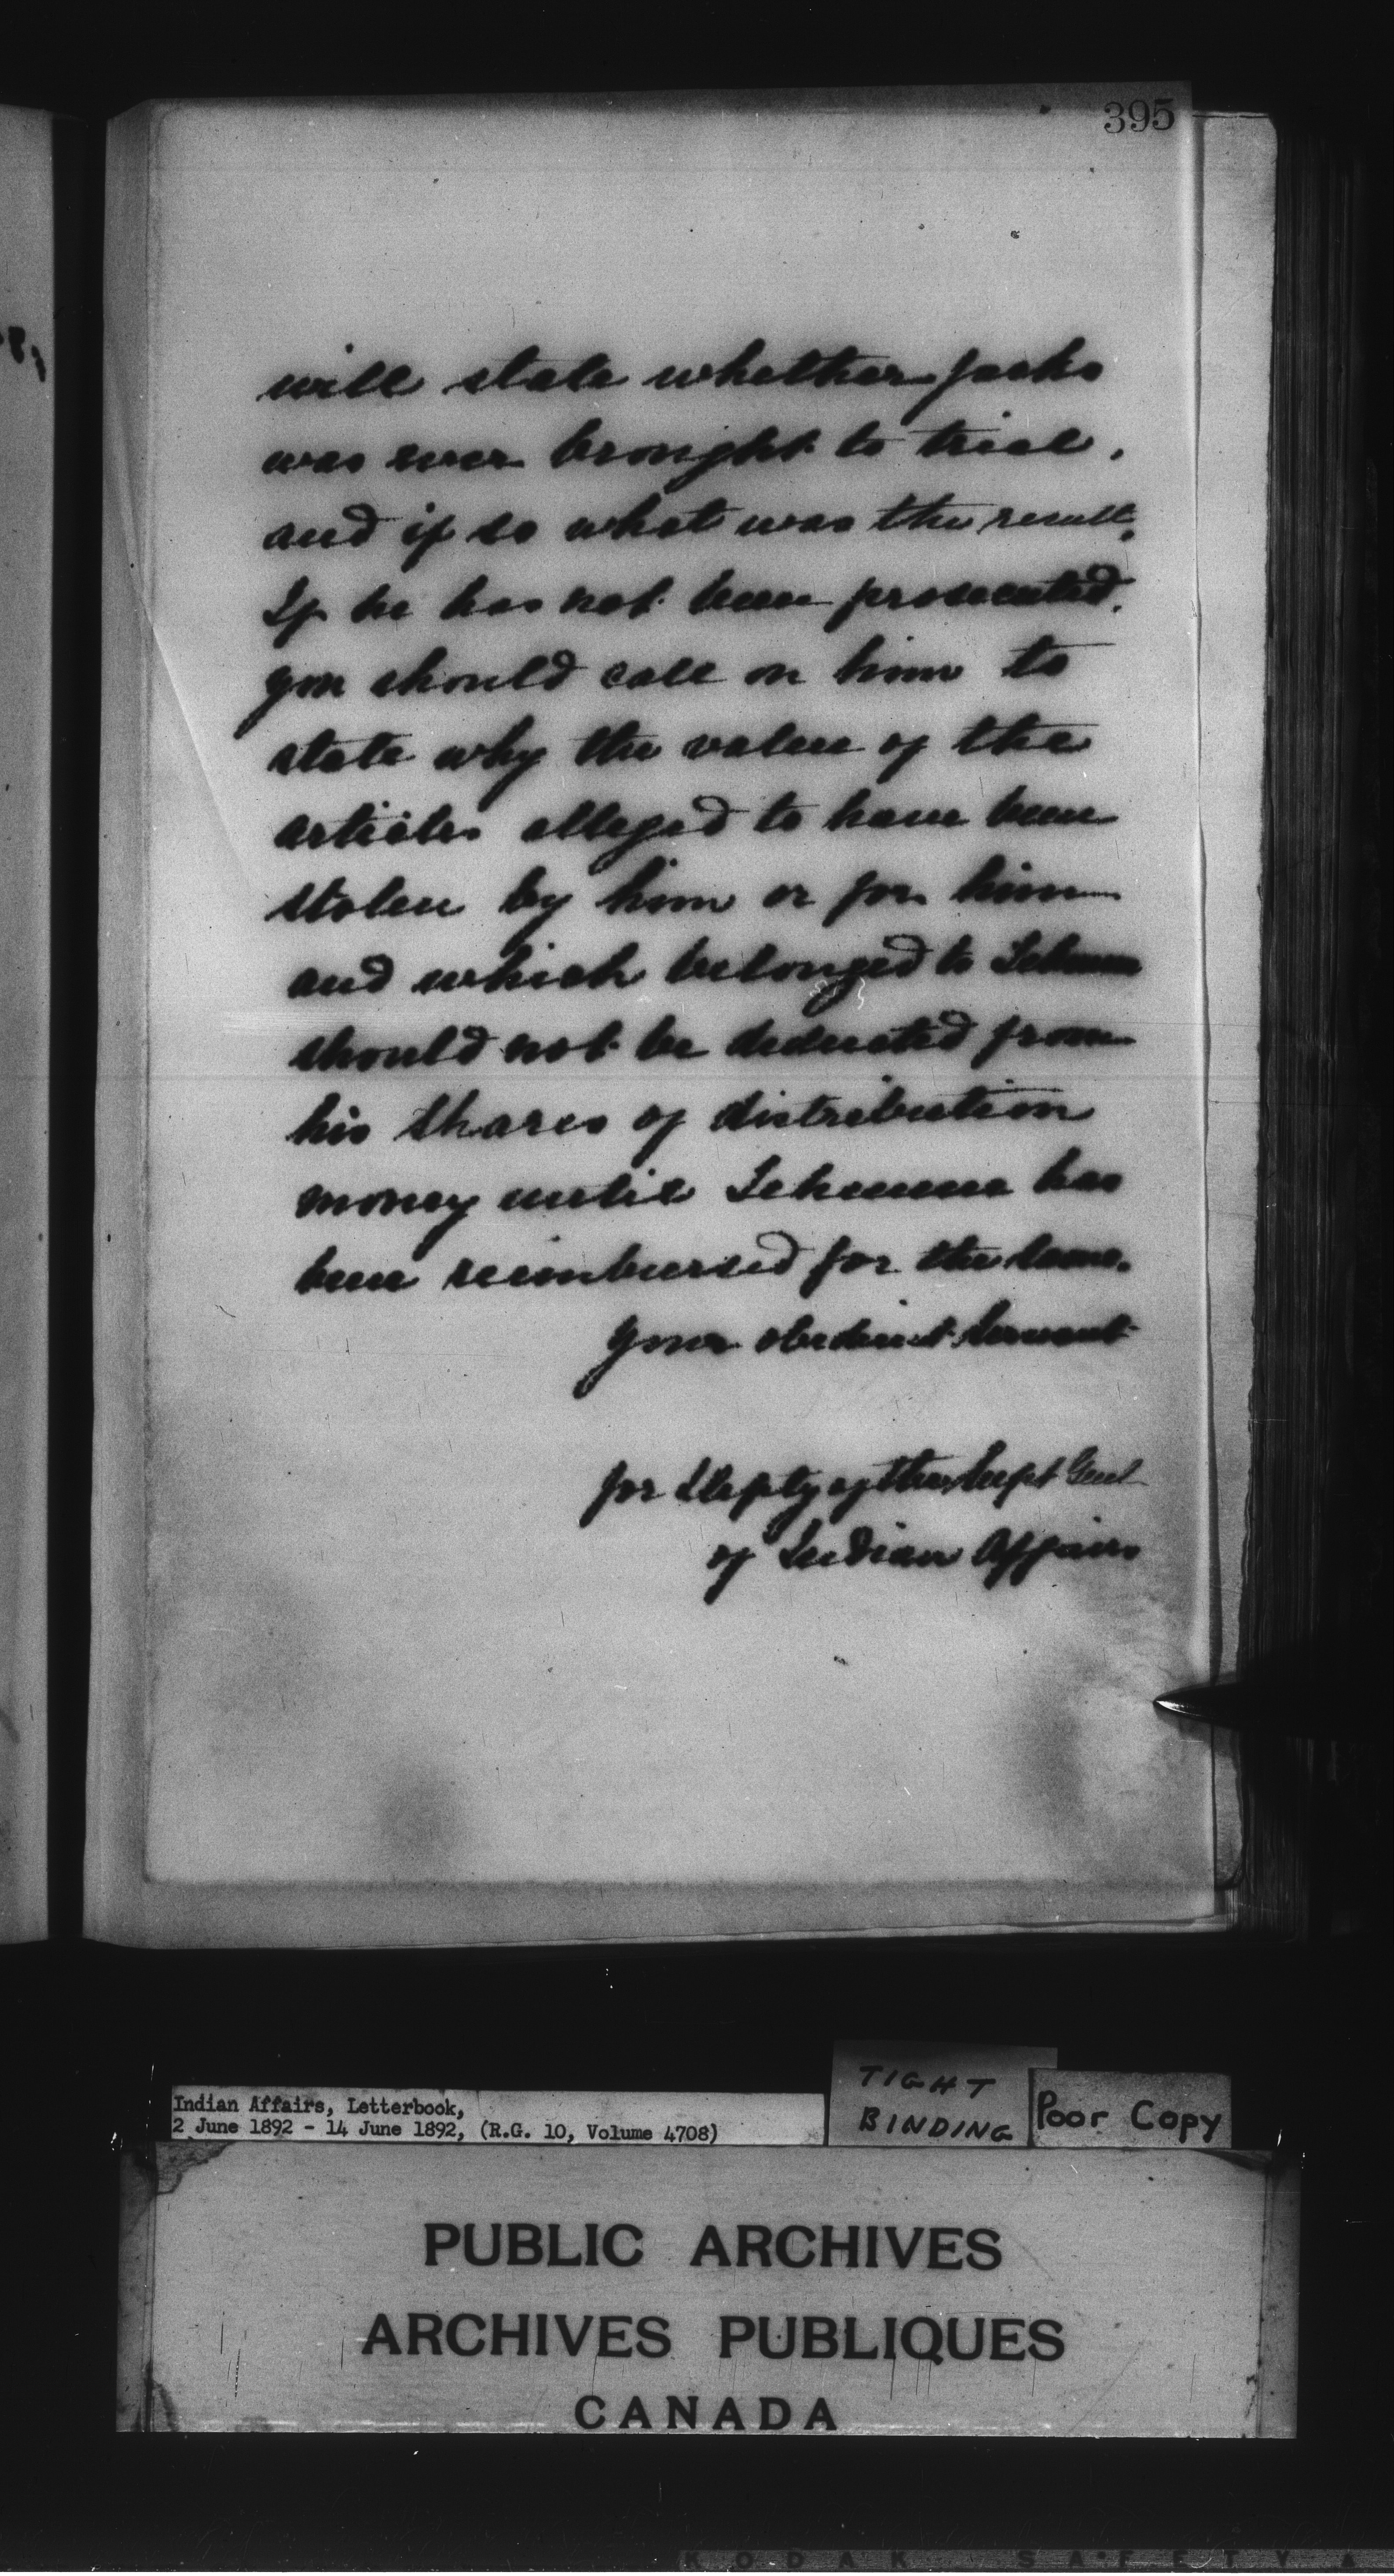 395
will state whether Jacks
was ever brought to trial,
and if so what was the result.
If he has not been prosecuted,
you should call on him to
state why the value of the
articles alleged to have been
stolen by him or for him
and which belonged to
should not be deducted from
his shares of distribution
money until has
been reimbursed for the same.
Your obedient Servant
for Depty of the Supt Genl
of Indian Affairs
Indian Affairs, Letterbook,
2 June 1892 - 14 June 1892, (R.G. 10, Volume 4708)
TIGHT
BINDING
Poor Copy
PUBLIC ARCHIVES
ARCHIVES PUBLIQUES
CANADA
KODAK SAFETY A